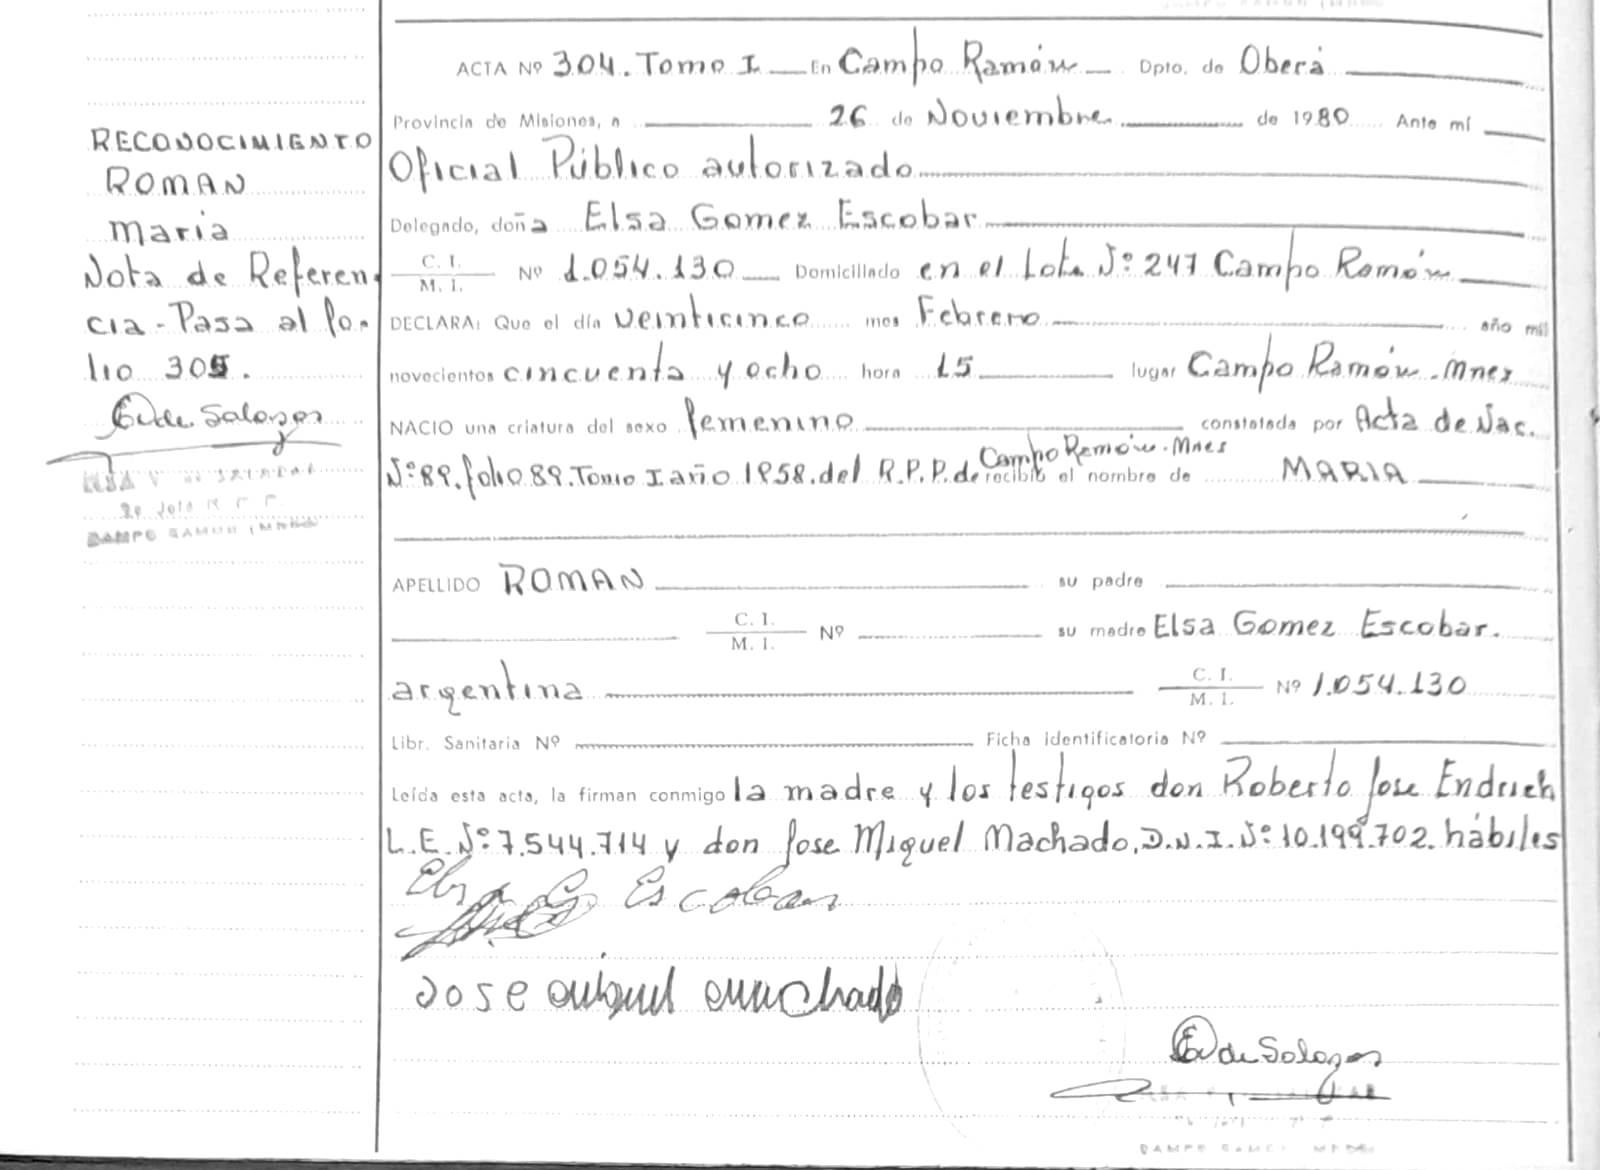 RECONOCIMIENTO
ROMAN
Maria
Nota de Referen-
cia - Pasa al fo-
lio 305.
E V de Salazar
ACTA Nº 304. Tomo I En Campo Ramón Dpto. de Oberá
Provincia de Misiones, a 26 de Noviembre de 1980 Ante mí
Oficial Público autorizado
Delegado, doña Elsa Gomez Escobar
C. I.
M. I. Nº 1.054.130 Domiciliado en el Lote Nº 247 Campo Ramón
DECLARA: Que el día veinticinco mes Febrero año mil
novecientos cincuenta y ocho hora 15 lugar Campo Ramón. Mnes
NACIO una criatura del sexo femenino constatada por Acta de Nac.
Nº 89. folio 89. Tomo I año 1958. del R.P.P. de Campo Ramón. Mnes recibió el nombre de MARIA
APELLIDO ROMAN su padre
C. I.
M. I. Nº su madre Elsa Gomez Escobar.
argentina C. I.
M. I. Nº 1.054.130
Libr. Sanitaria Nº Ficha identificatoria Nº
Leída esta acta, la firman conmigo la madre y los testigos don Roberto Jose Endrich
L.E. Nº 7.544.714 y don Jose Miguel Machado. D.N.I. Nº 10.199.702. hábiles
Elsa G Escobar
Jose Miguel Machado
E V de Salazar